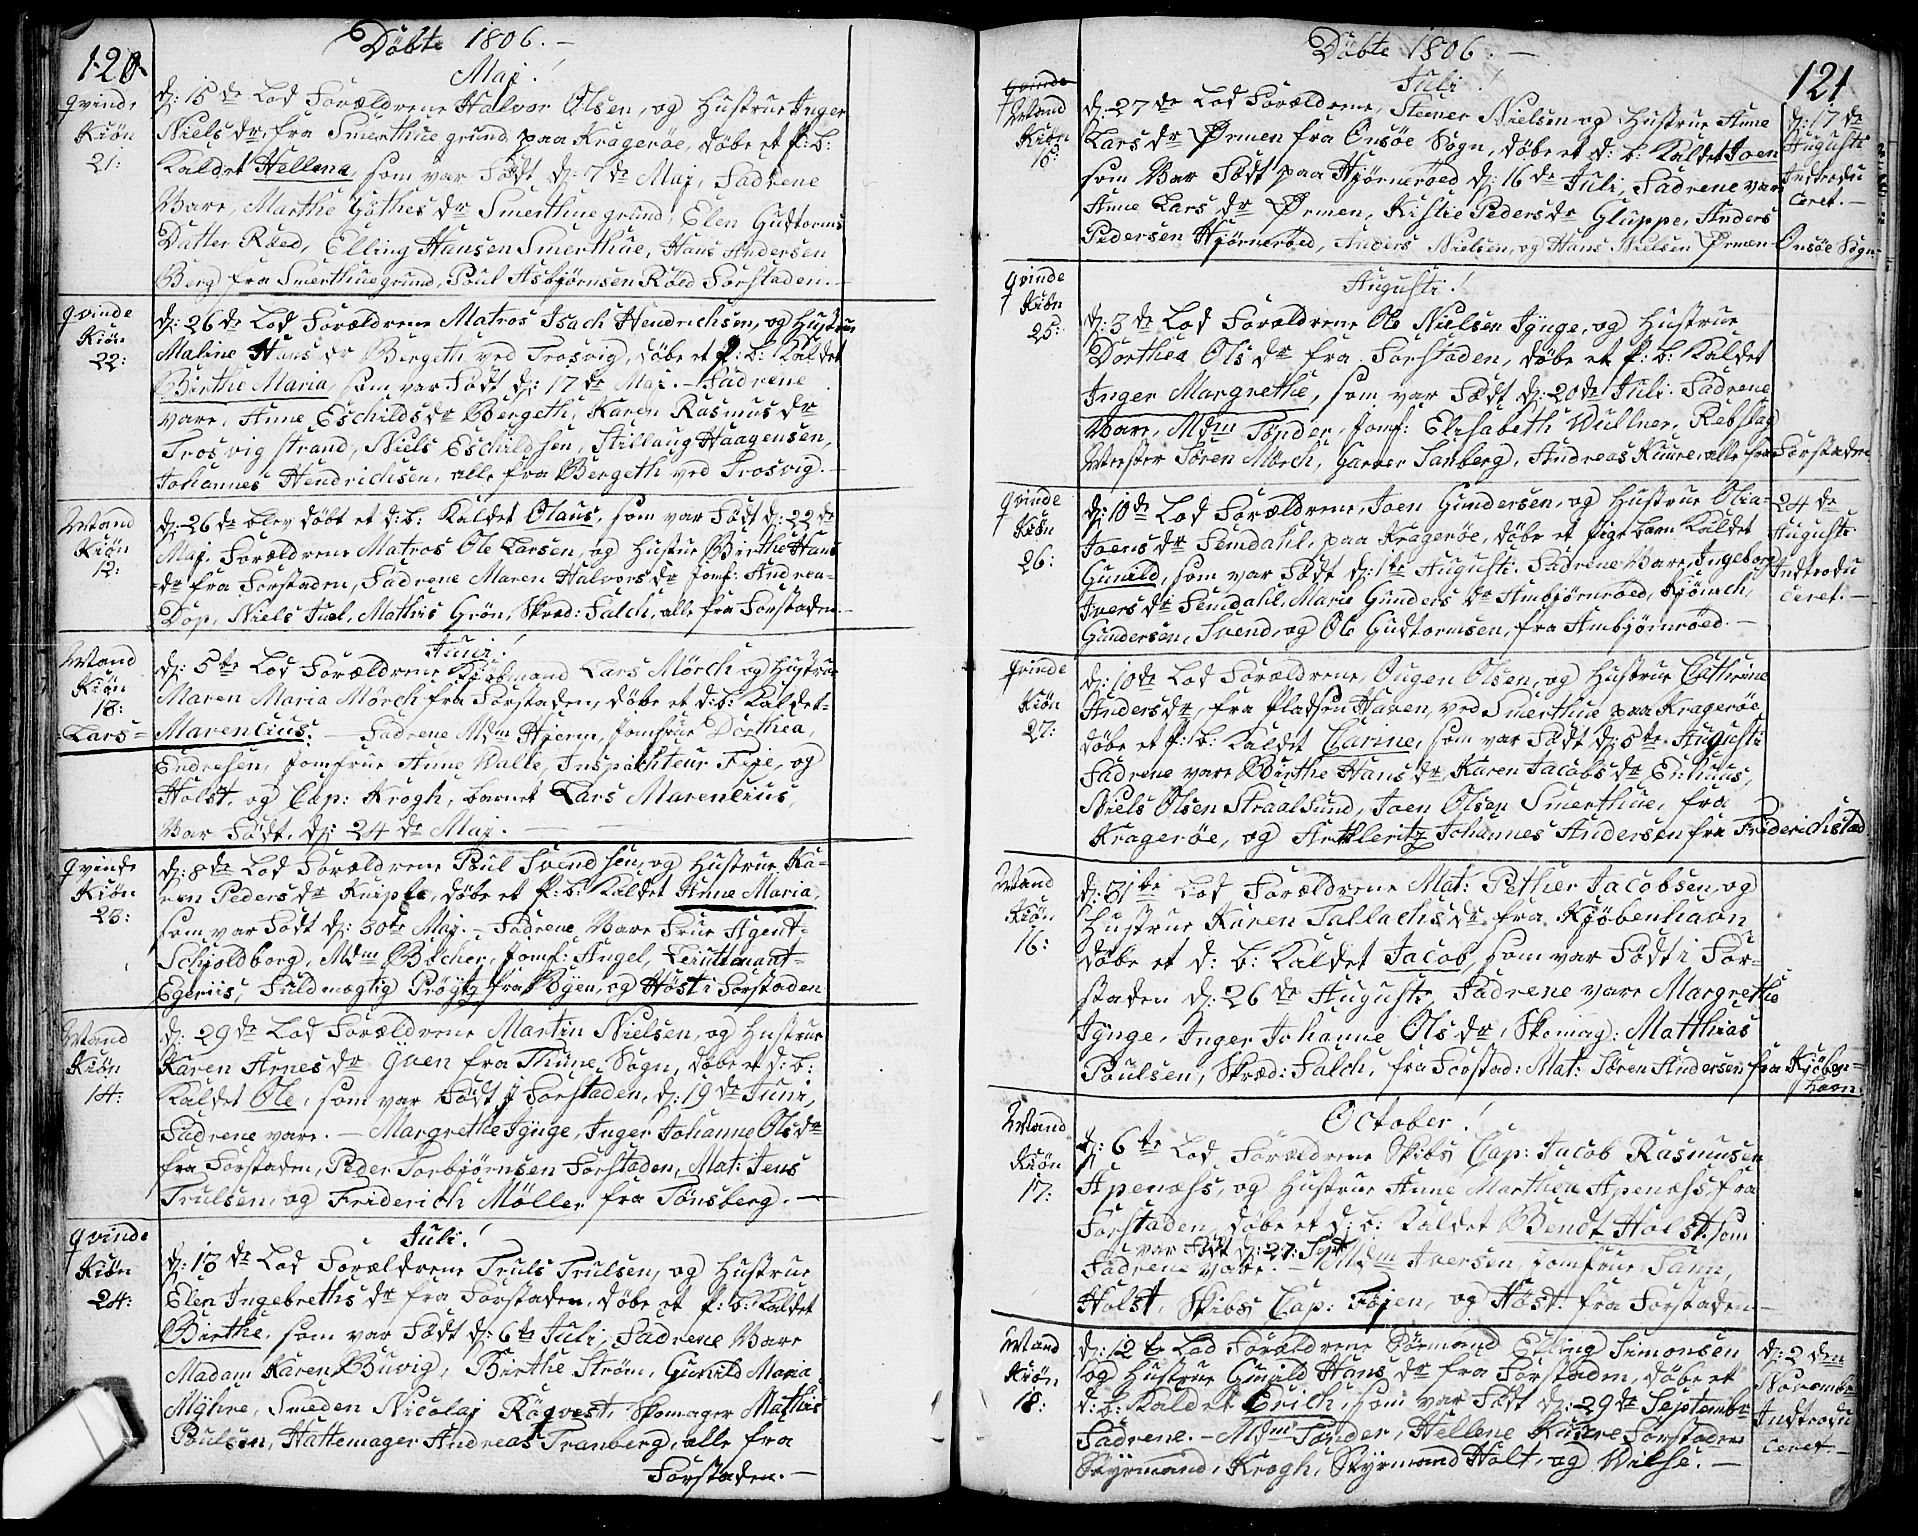 120
Döbte 1806. —
Maj!
qvinde
Kiön
21:
dj: 15 de Lod Forældrene Halvor Olsen, og Hustrue Inger
Niels dr, fra Smerthue grund paa Kragerøe, döbe et p: b:
Kaldet Hellena, som var Födt dj: 7 de Maj, Fadrene
Vare, Marthe Göthes dr Smerthue grund, Elen Gudtorms
Datter Röed, Elling Hansen Smerthue, Hans Andersen
Berg fra Smerthue grund, Poul Asbjörnsen Röed Forstaden. —
qvinde
Kiön
22:
dj: 26 de Lod Forældrene Matros Isach Hendrichsen, og Hustrue
Maline Hans dr Bergeth ved Trosvig, döbe et p: b: Kaldet
Birthe Maria, som var Födt dj: 17 de Maj. — Fadrene
vare, Anne Eschilds dr Bergeth, Karen Rasmus dr
Trosvig strand, Niels Eschildsen, Stillaug Haagensen,
Johannes Hendrichsen, alle fra Bergeth ved Trosvig. —
Mand
Kiön
12:
dj: 26 de blev döbt et d: b: Kaldet Olaus, som var Födt dj: 22 de
Maj. Forældrene Matros Ole Larsen, og Hustrue Birthe Hans
dr fra Forstaden, Fadrene Maren Halvors dr Jomf: Andrea
Dop, Niels Juel, Mathis Grön, Skræd: Falch, alle fra Forstaden. —
Juni!
Mand
Kiön
13:
dj: 5 te Lod Forældrene Kiöbmand Lars Mörch og Hustrue
Maren Maria Mörch fra Forstaden, döbe et d: b: Kaldet
Lars = Marencius. — Fadrene Mdm Hjerm, Jomfrue Dorthea,
Endresen, Jomfrue Anne Kalle, Inspecteur Feje, og
Holst, og Cap: Krogh, barnet Lars Marencius,
Var Födt, dj: 24 de Maj. —
qvinde
Kiön
23:
dj: 8 de Lod Forældrene Poul Svendsen, og Hustrue Ka-
ren Peders dr Kniple, döbe et p: b: Kaldet Anne Maria,
som var Födt dj: 30 te Maj. — Fadrene Vare Frue Agent
Schjoldborg, Mdm Böcher, Jomf: Angel, Leuttenant
Egeriis, Fuldmægtig Pröytz fra Byen, og Höst i Forstaden
Mand
Kiön
14:
dj: 29 de Lod Forældrene Martin Nielsen, og Hustrue
Karen Arnes dr Gven fra Thune Sogn, döbe et d: b:
Kaldet Ole, som var Födt i Forstaden, dj: 19 de Juni,
Fadrene vare. — Margrethe Iynge, Inger Johanne Ols dr
fra Forstaden, Peder Torbjörnsen Forstaden, Mat: Jens
Trulsen, og Friderich Möller fra Tönsberg. —
Juli!
qvinde
Kiön
24:
dj: 13 de Lod Forældrene Truls Trulsen, og Hustrue
Elen Ingebreths dr fra Forstaden, döbe et p: b: Kaldet
Birthe, som var Födt dj: 6 te Juli, Fadrene Vare
Madam Karen Buvig, Birthe Ström, Gunild Maria
Myhre, Smeden Nicolaj Röqvest, Skomager Mathis
Poulsen, Hattemager Andreas Tranberg, alle fra
Forstaden. —
Döbte 1806. —
121
Juli!
qvinde
Mand
Kiön
15:
dj: 27 de Lod Forældrene, Steener Nielsen og Hustrue Anne
Lars dr Örmen fra Onsöe Sogn, döbe et d: b: Kaldet Joen
som Var Födt paa Hjörneröed dj: 16 de Juli, Fadrene vare
Anne Lars dr Örmen, Kistie Peders dr Gluppe, Anders
Pedersen Hjörneröed, Anders Nielsen, og Hans Nielsen Örmen Onsöe Sogn
dj: 17 de
Augusti
Indtrodu
ceret. —
Augusti!
qvinde
Kiön
25:
dj: 3 de Lod Forældrene Ole Nielsen Iynge, og Hustrue
Dorthea Ols dr fra Forstaden, döbe et p: b: Kaldet
Inger Margrethe, som var Födt dj: 20 de Juli. Fadrene
Vare, Mdm Tönder, Jomf: Elisabeth Wullner, Rebslag
Mester Sören Mörch, Garver Sanberg, Andreas Kuure, alle fra Forstaden
qvinde
Kiön
26:
dj: 10 de Lod Forældrene, Joen Gundersen, og Hustrue Olia
Joens dr Semdahl, paa Kragerøe, döbe et pige barn Kaldet
Gunild, som var Födt dj: 1 te Augusti. Fadrene Vare, Ingeborg
Ivers dr Semdahl, Marie Gunders dr Ambjörnröed,
Gundersen, Svend, og Ole Gudtormsen, fra Ambjörnröed. —
24 de
Augusti
Indtrodu
ceret. —
qvinde
Kiön
27:
dj: 10 de Lod Forældrene, Ougen Olsen, og Hustrue Cathrine
Anders dr, fra Pladsen Haven, ved Smerthue paa Kragerøe
döbe et p: b: Kaldet Carine, som var Födt dj: 5 te Augusti
Fadrene vare Birthe Hans dr, Karen Jacobs dr Enhuus,
Niels Olsen Straalsund, Joen Olsen Smerthue, fra
Kragerøe, og Johannes Andersen fra Friderichstad
Mand
Kiön
16:
dj: 31 te Lod Forældrene Mat: Pether Jacobsen, og
Hustrue Karen Tallachs dr fra Kjöbenhavn
döbe et d: b: Kaldet Jacob, som var Födt i For-
staden dj: 26 de Augusti, Fadrene vare Margrethe
Iynge, Inger Johanne Ols dr, Skomag: Matthias
Poulsen, Skræd: Falch, fra Forstad: Mat: Sören Andersen fra Kjöben-
havn
October!
Mand
Kiön
17:
dj: 6 te Lod Forældrene Skibs Cap: Jacob Rasmusen
Apenæss, og Hustrue Anne Marthea Apenæss, fra
Forstaden, döbe et d: b: Kaldet Bendt Holst. som
var Födt dj: 27: Sept
Fadrene vare. — Mdm Iversen, Jomfrue Sann,
Holst, Skibs Cap: Föjen, og Höst. fra Forstaden —
Mand
Kiön
18:
dj: 12 te Lod Forældrene Sömand Elling Simonsen
og Hustrue Gunild Hans dr fra Forstaden, döbe et
d: b: Kaldet Erich, som var Födt dj: 29 de Septembr
Fadrene. — Mdm Tönder, Hellene Kuure Forstaden
Styrmand, Krogh, Styrmand Holt, og Wilse. —
dj: 2 den
Novembr
Indtrodu
ceret. —